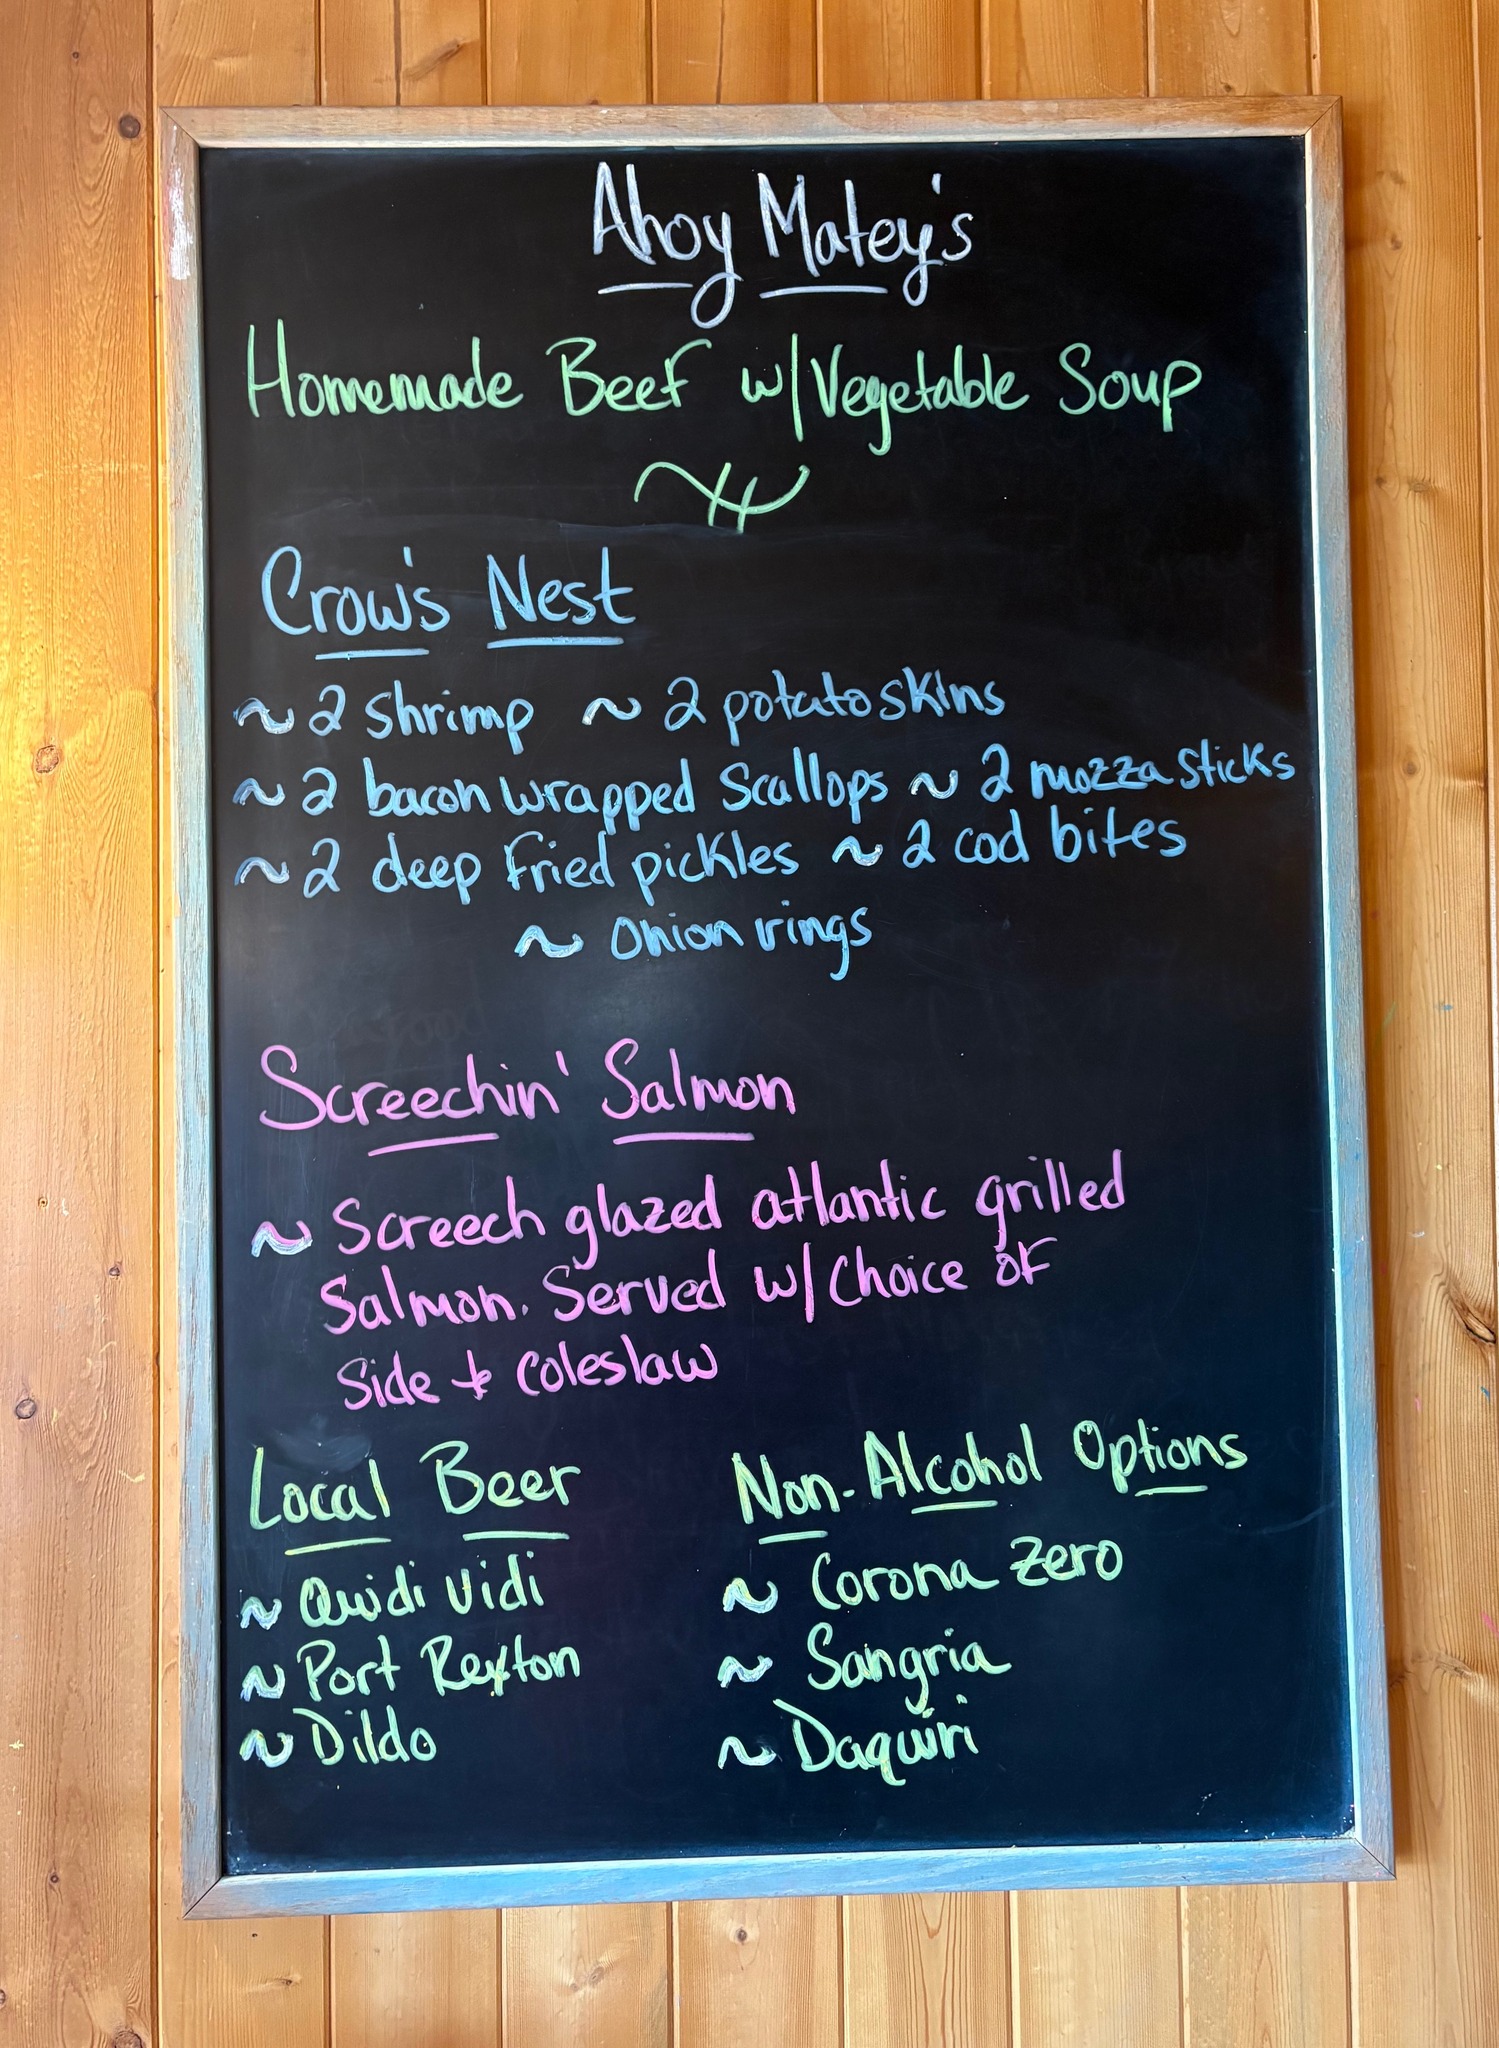 Ahoy Matey's
Homemade Beef w/Vegetable Soup
Crow's Nest
~ 2 shrimp ~ 2 potato skins
~ 2 bacon wrapped Scallops ~ 2 mozza sticks
~ 2 deep fried pickles ~ 2 cod bites
~ Onion rings
Screechin' Salmon
~ Screech glazed atlantic grilled
Salmon. Served w/ choice of
Side + coleslaw
Local Beer
~ Quidi Vidi
~ Port Rexton
~ Dildo
Non-Alcohol Options
~ Corona Zero
~ Sangria
~ Daquiri